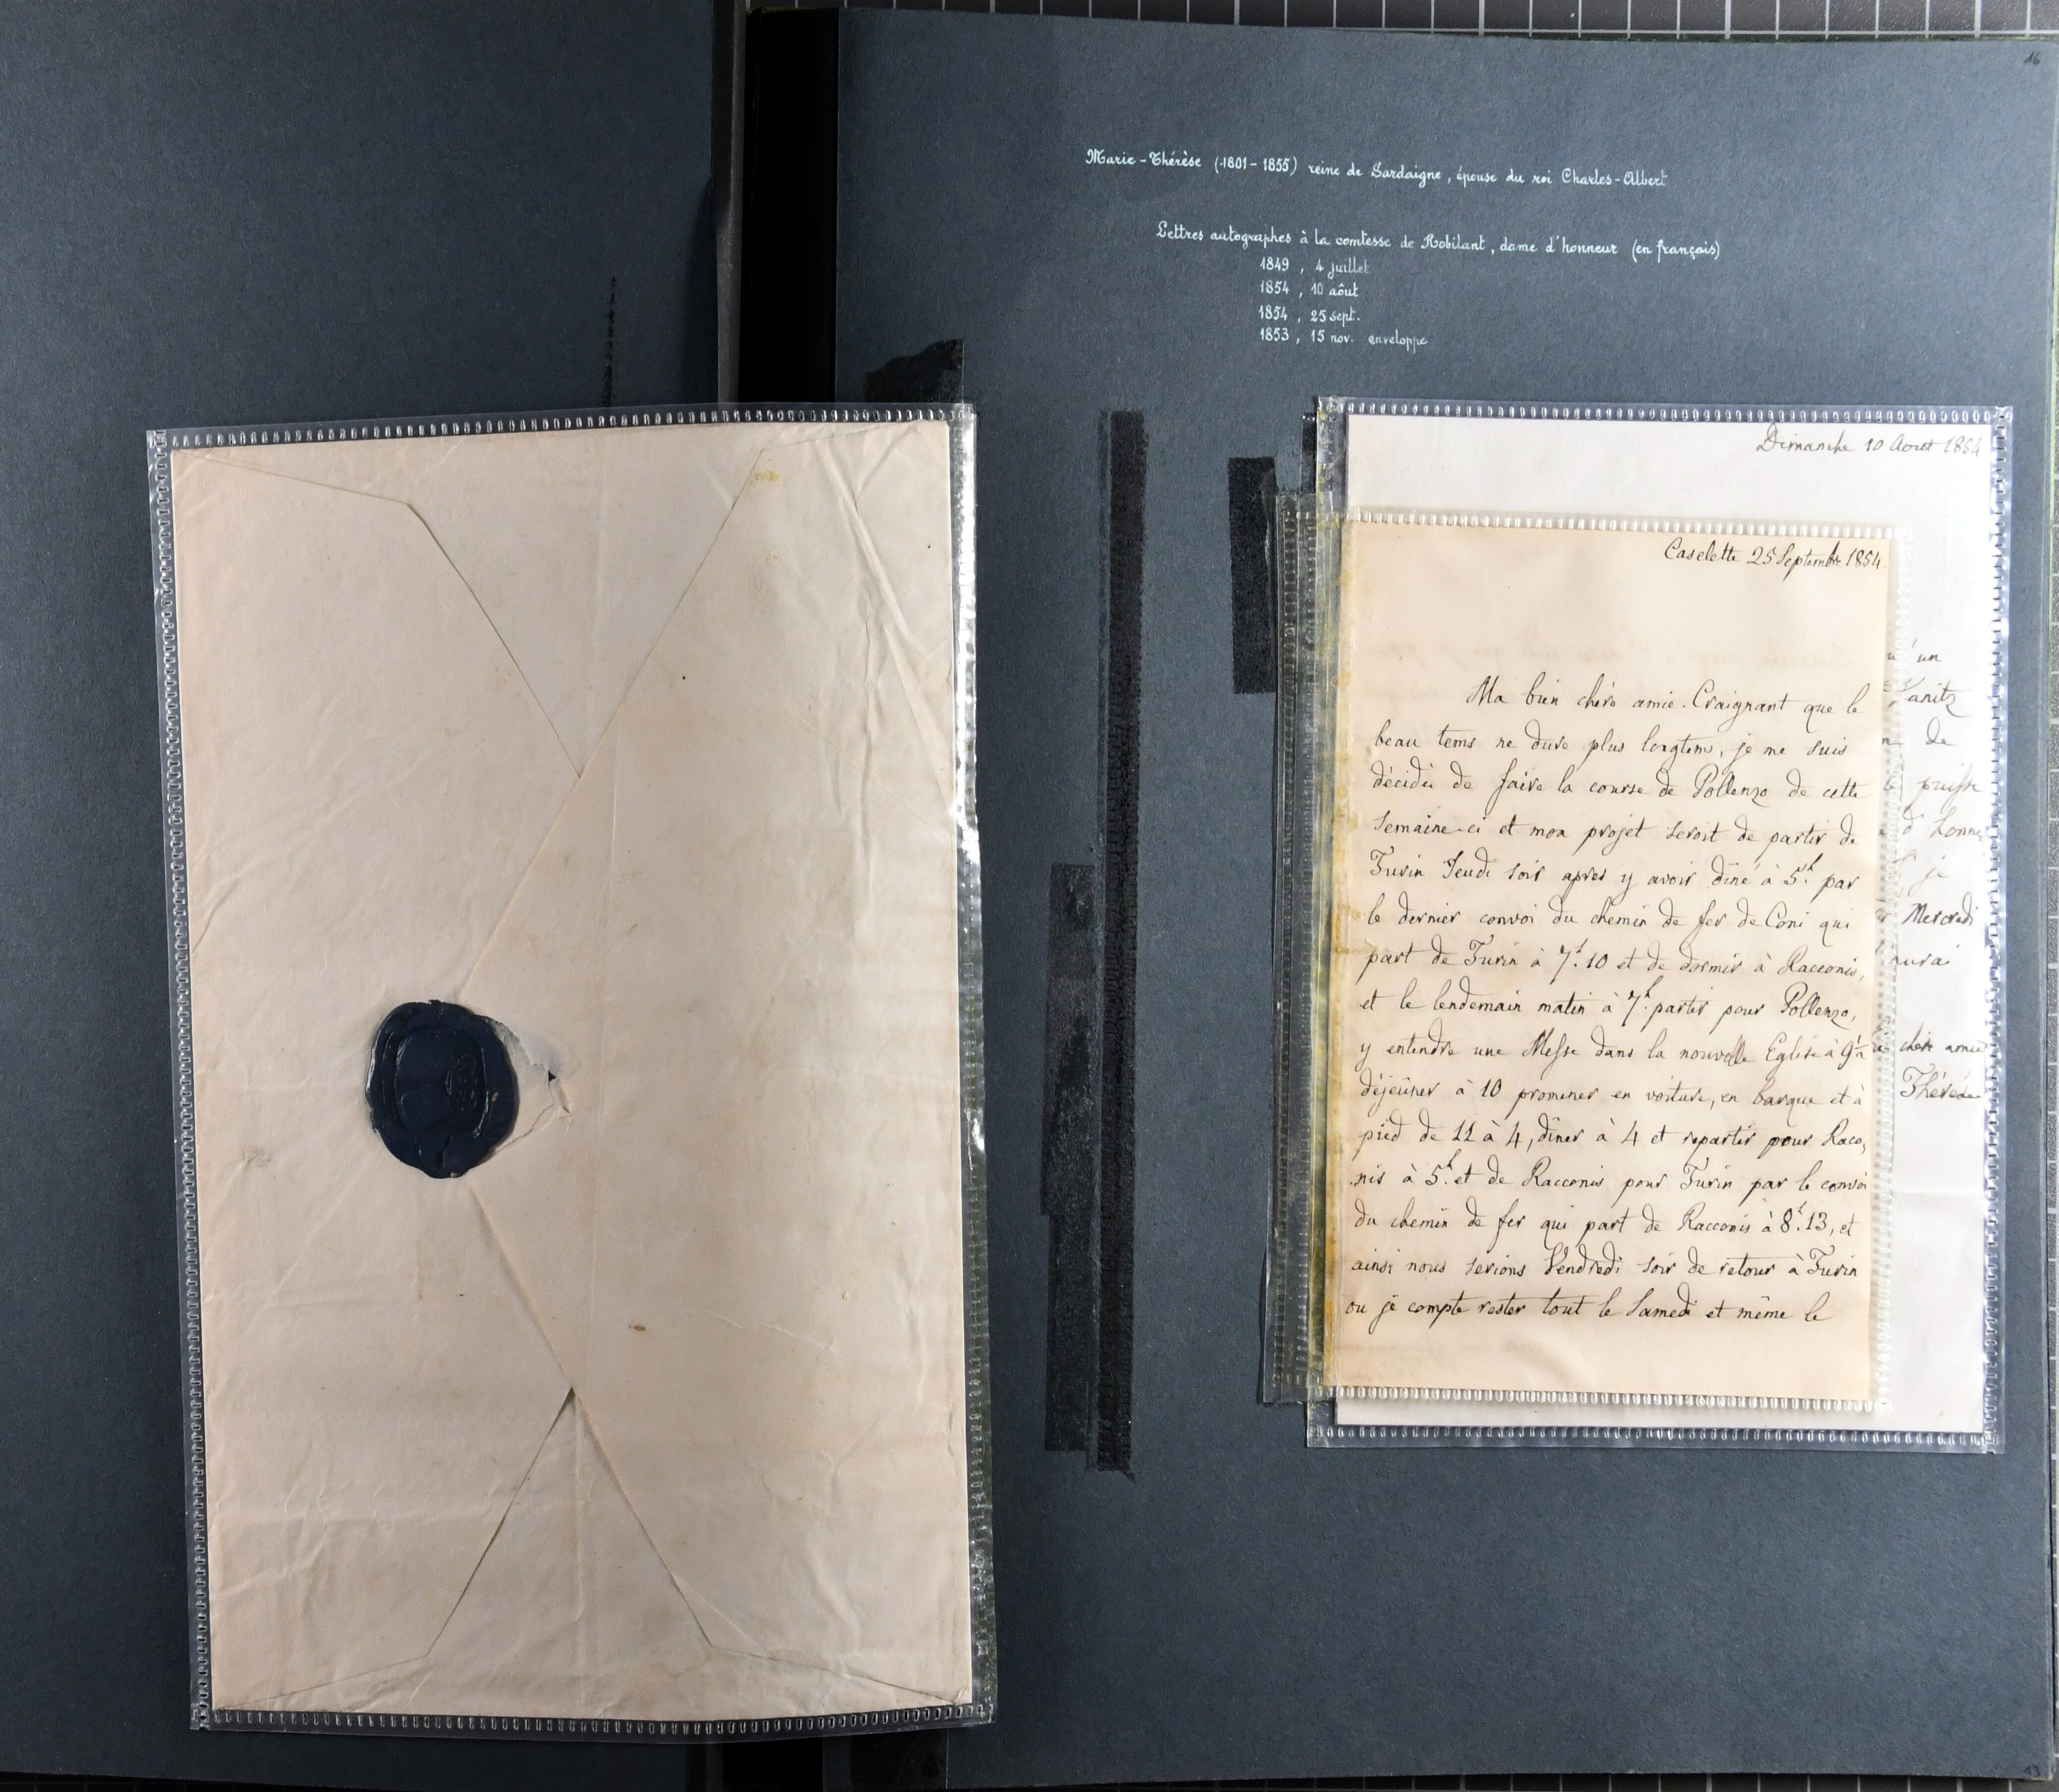 16
Marie-Thérèse (1801-1855) reine de Sardaigne, épouse du roi Charles-Albert
Lettres autographes à la comtesse de Robilant, dame d'honneur (en français)
1849, 4 juillet
1854, 10 aôut
1854, 25 sept.
1853, 15 nov. enveloppe
Dimanche 10 Aout 1854
Caselette 25 Septembre 1854.
Ma bien chère amie. Craignant que le
beau tems ne dure plus longtems, je me suis
décidée de faire la course de Pollenzo de cette
semaine-ci et mon projet seroit de partir de
Turin Jeudi soir apres y avoir diné à 5h. par
le dernier convoi du chemin de fer de Coni qui
part de Turin à 7h. 10 et de dormir à Racconis,
et le lendemain matin à 7h. partir pour Pollenzo,
y entendre une Messe dans la nouvelle Eglise à 9h
déjeûner à 10 promener en voiture, en barque et à
pied de 11 à 4, dîner à 4 et repartir pour Raco,
nis à 5h. et de Racconis pour Turin par le convoi
du chemin de fer qui part de Racconis à 8h. 13, et
ainsi nous serions Vendredi soir de retour à Turin
ou je compte rester tout le Samedi et même le
un
de
puisse
d'honn
je
Mercredi
chère amie
Thérèse
13